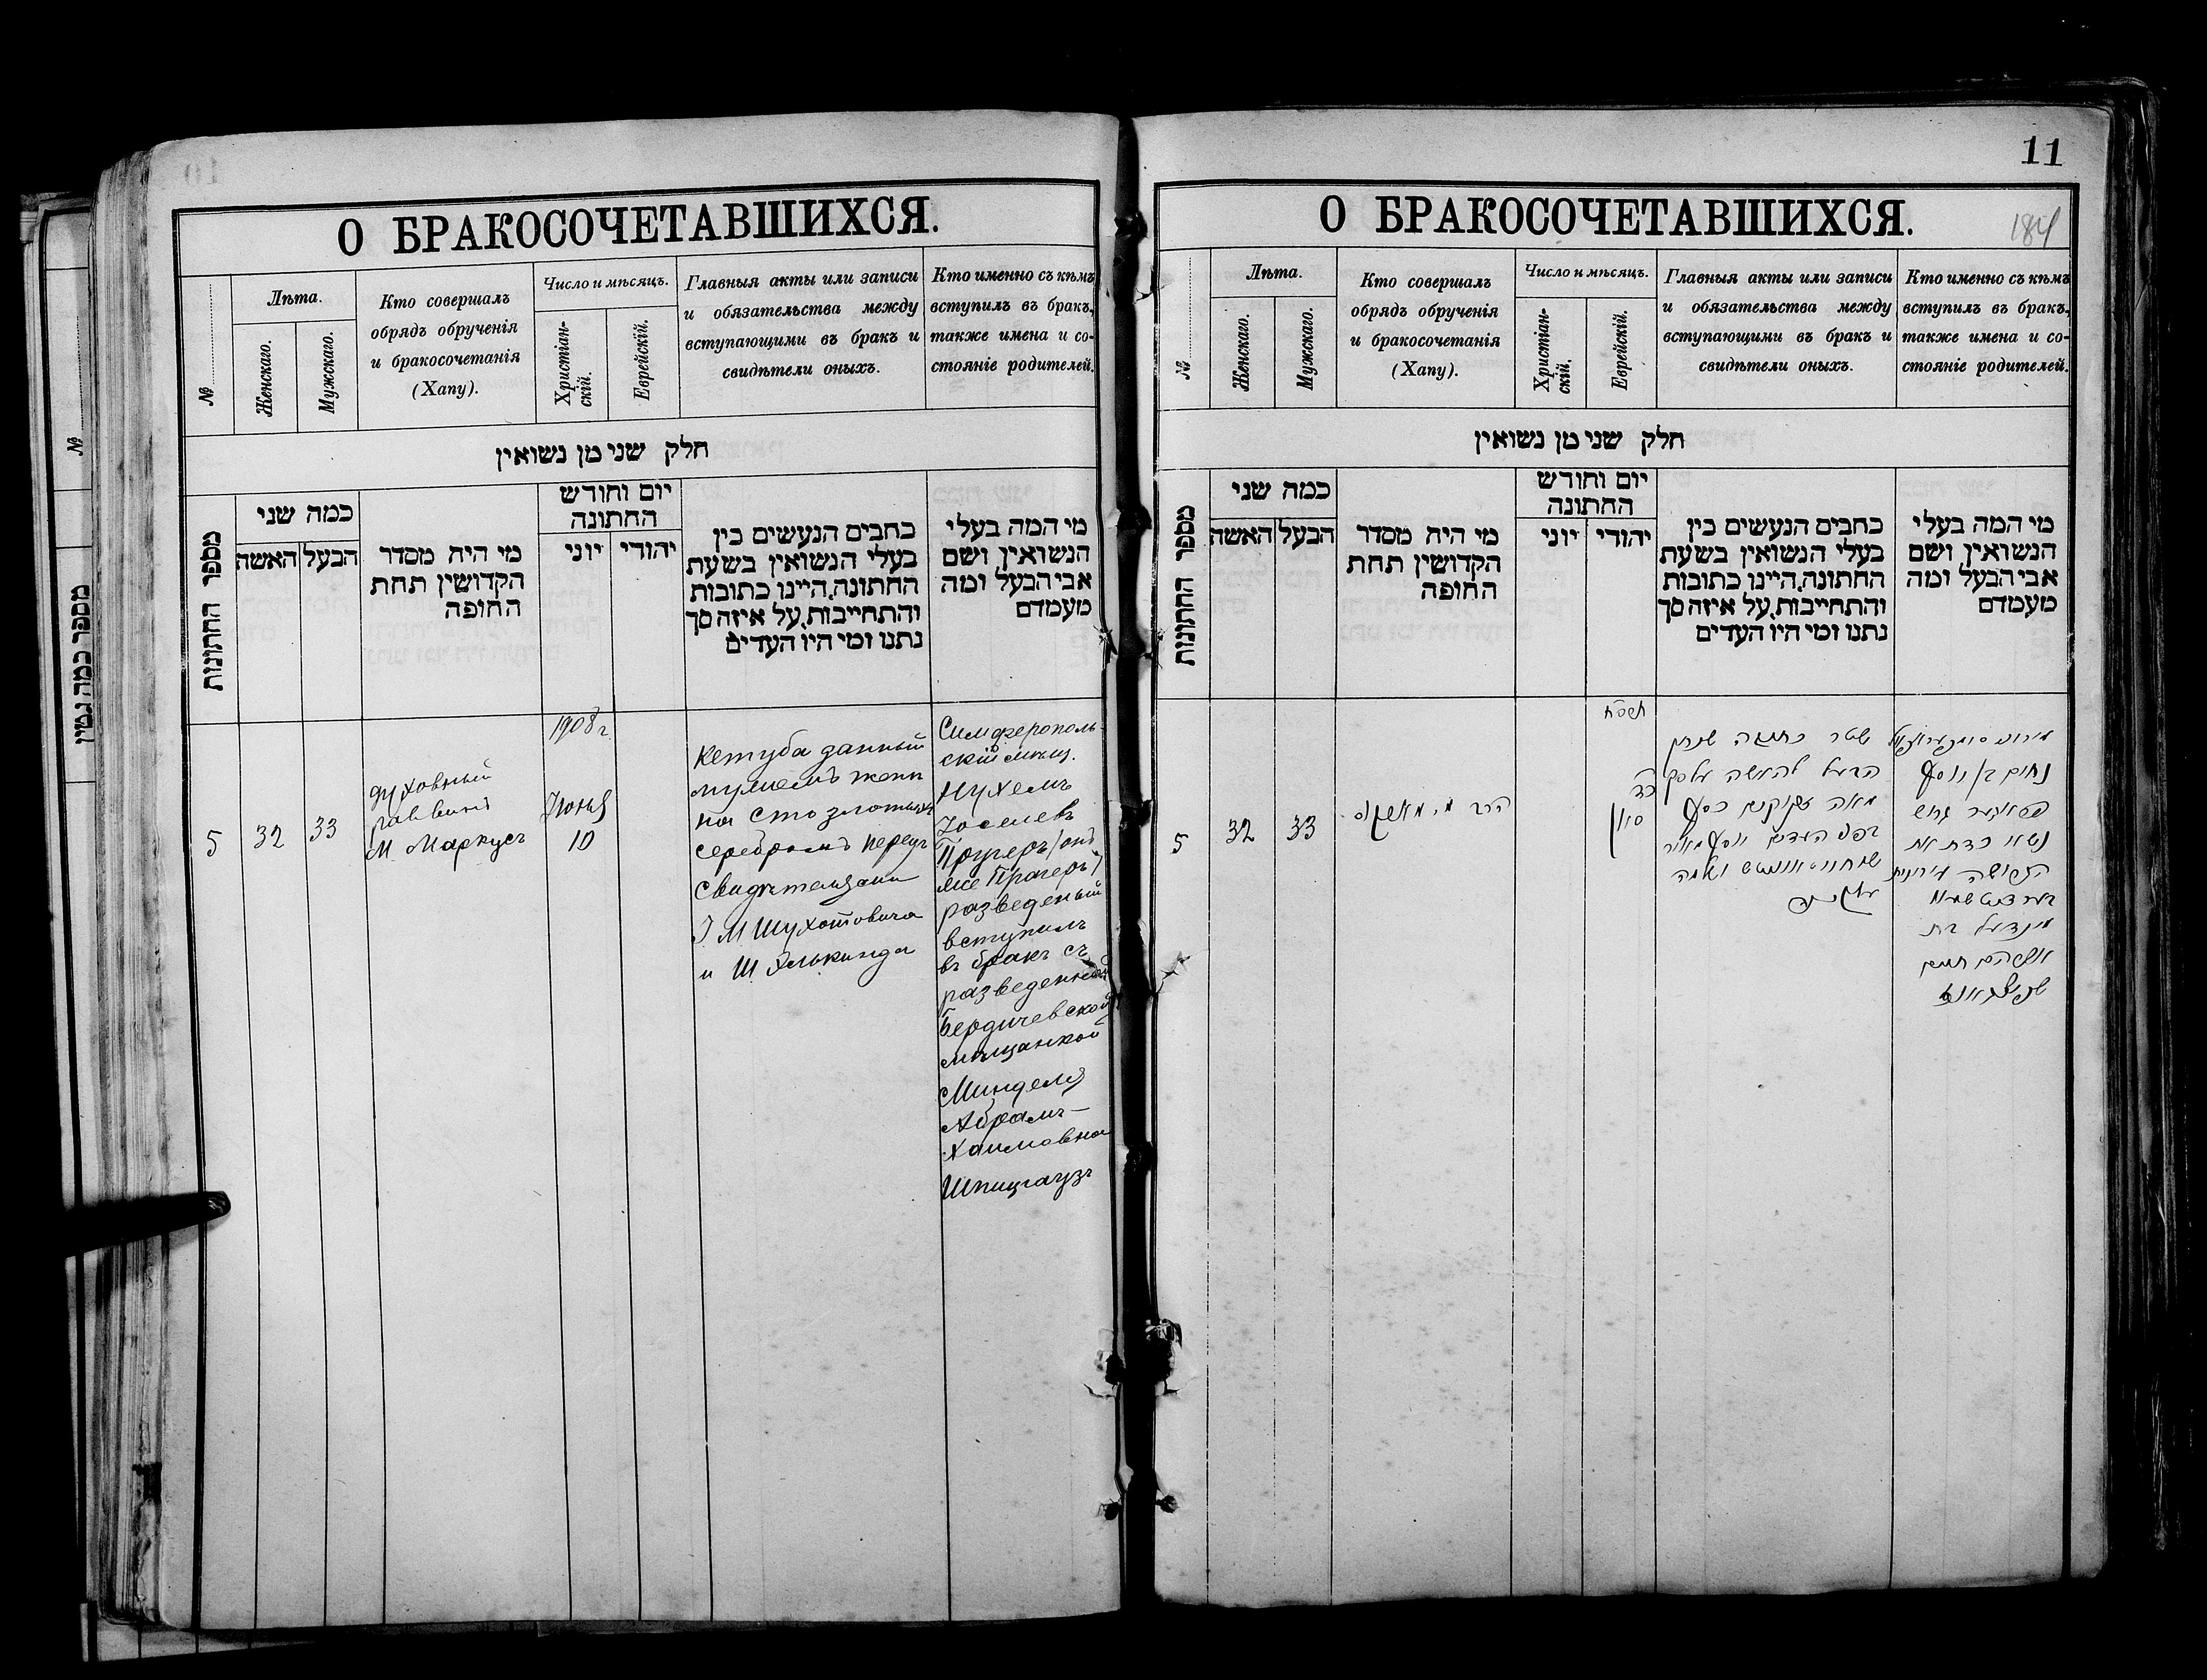 О БРАКОСОЧЕТАВШИХСЯ.
№
Лѣта.
Женскаго.
Мужскаго.
Кто совершалъ
обрядъ обрученія
и бракосочетанія
(Хапу).
Число и мѣсяцъ.
Христіан-
скій.
Еврейскій.
Главныя акты или записи
и обязательства между
вступающими въ бракъ и
свидѣтели оныхъ.
Кто именно съ кѣмъ
вступилъ въ бракъ,
также имена и со-
стояніе родителей.
חלק שני מן נשואין
מספר החתונות
כמה שני
האשה
הבעל
מי היה מסדר
הקדושין תחת
החופה
יום וחודש
החתונה
יוני
יהודי
כתבים הנעשים בין
בעלי הנשואין בשעת
החתונה, היינו כתובות
והתחייבות, על איזה סך
נתנו ומי היו העדים
מי המה בעלי
הנשואין ושם
אבי הבעל ומה
מעמדם
5
32
33
духовный
раввинъ
М. Маркусъ
1908 г.
Іюня
10
Кетуба данный
мужемъ жене
на сто злотыхъ
серебромъ передъ
свидѣтелями
І М Шухотовича
и Ш Элькинда
Симферополь-
скій мѣщ.
Нухемъ
Іоселевъ
Пругеръ /онъ
же Прагеръ/
разведеный
вступилъ
въ бракъ съ
разведенной
Бердичевской
мѣщанкой
Минделя
Абрамъ-
Хаимовна
Шпицгаузъ
11
184
О БРАКОСОЧЕТАВШИХСЯ.
№
Лѣта.
Женскаго.
Мужскаго.
Кто совершалъ
обрядъ обрученія
и бракосочетанія
(Хапу).
Число и мѣсяцъ.
Христіан-
скій.
Еврейскій.
Главныя акты или записи
и обязательства между
вступающими въ бракъ и
свидѣтели оныхъ.
Кто именно съ кѣмъ
вступилъ въ бракъ,
также имена и со-
стояніе родителей.
חלק שני מן נשואין
מספר החתונות
כמה שני
האשה
הבעל
מי היה מסדר
הקדושין תחת
החופה
יום וחודש
החתונה
יוני
יהודי
כתבים הנעשים בין
בעלי הנשואין בשעת
החתונה, היינו כתובות
והתחייבות, על איזה סך
נתנו ומי היו העדים
מי המה בעלי
הנשואין ושם
אבי הבעל ומה
מעמדם
5
32
33
הרב מ. מארקוס
תרסח
כד
סיון
שטר כתובה שנתן
הבעל להאשה על סך
מאה זקוקים כסף
בפני העדים יוסף מאיר
נחום בן יוסף
גרוש
נשוי כדת את
הגרושה
מינדעל בת
אברהם חיים